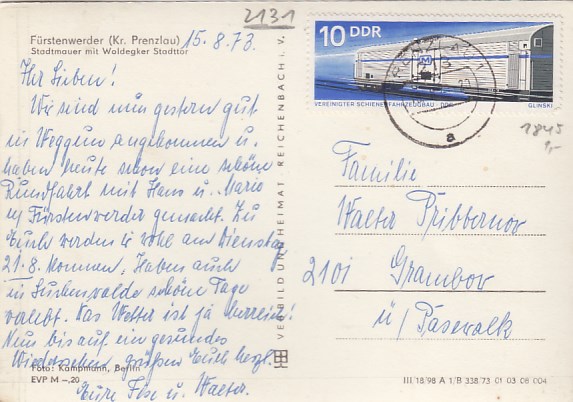 2131
Fürstenwerder (Kr. Prenzlau)
Stadtmauer mit Woldegker Stadttor
15.8.73
Ihr Lieben!
Wir sind nun gestern gut
in Weggun angekommen u.
haben heute schon eine schöne
Rundfahrt mit Hans u. Mario
n/ Fürstenwerder gemacht. Zu
Euch werden wir wohl am Dienstag
21.8. kommen. Haben auch
in Luckenwalde schöne Tage
verlebt. Das Wetter ist ja herrlich!
Nun bis auf ein gesundes
Wiedersehen grüßen Euch herzl.
Eure Ilse u. Walter.
Foto: Kampmann, Berlin
EVP M –,20
VERLAG BILD UND HEIMAT REICHENBACH i. V.
10 DDR
VEREINIGTER SCHIENENFAHRZEUGBAU · DDR
GLINSKI
a
1845
1,-
Familie
Walter Pribbernow
2101 Grambow
ü/ Pasewalk
III 18/98 A 1/B 338/73 01 03 06 004